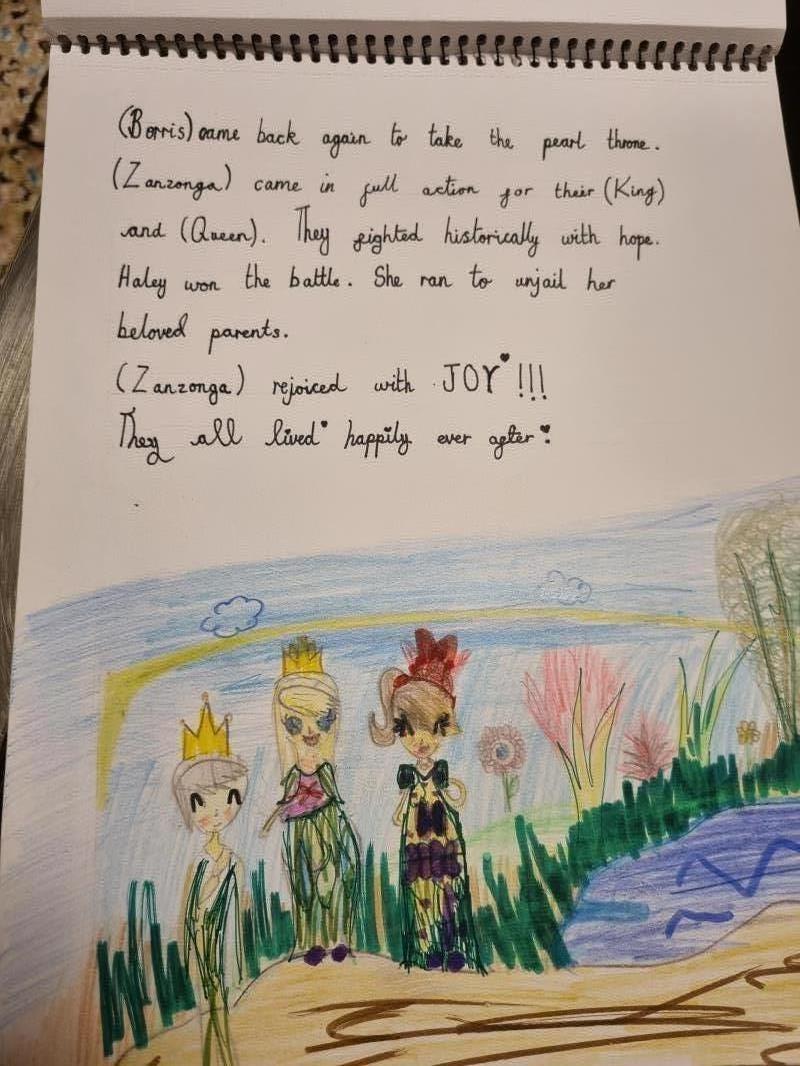 (Borris) came back again to take the pearl throne.
(Zanzonga) came in full action for their (King)
and (Queen). They fighted historically with hope.
Haley won the battle. She ran to unjail her
beloved parents.
(Zanzonga) rejoiced with JOY♥!!!
They all lived♥ happily ever after♥.